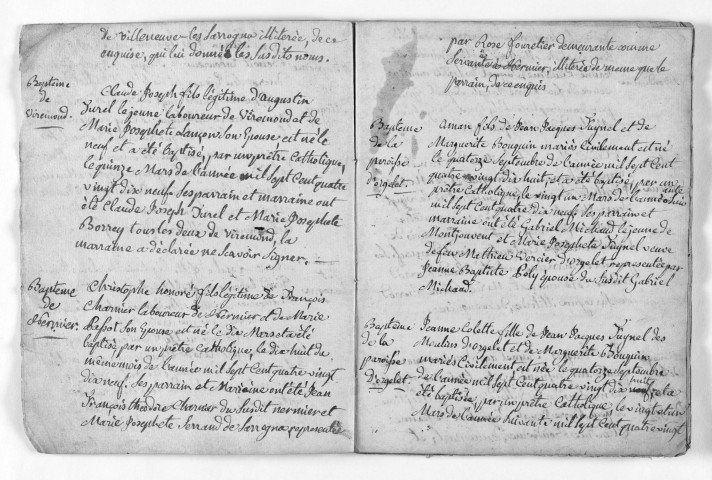 de villeneuve les Sarrogna illiterée, de ce
enquise, qui lui donnée les susdits noms.
Bapteme
de
Viremond.
Claude Joseph fils légitime d'augustin
Jurel le jeune laboureur de Viremond et de
Marie Josephete Lançon son epouse est né le
neuf et a été baptisé, par un prêtre Catholique,
le quinze Mars de l'année mil sept Cent quatre
vingt dix neuf ses parrain et marraine ont
été Claude Joseph Jurel et Marie Josephete
Borrey tous les deux de Viremond, la
marraine a déclarée ne scavoir signer,
Bapteme
de
Nernier.
Christophe honoré fils légitime de François
Charnier laboureur de Nernier et de Marie
son epouse est né le dix Mars et a été
baptisé, par un prêtre Catholique, le dix huit du
même mois de l'année mil sept Cent quatre vingt
dix neuf. Ses parrain et Marraine ont été Jean
François théodore Charnier du susdit nernier et
Marie Josephete Ferrand de Sarrogna representée
par Rose fouretier demeurante comme
servante à Nernier, illiterée de meme que le
parrain, de ce enquis
Bapteme
de la
paroisse
d'orgelet.
aman fils de Jean Jaques Faynel et de
Marguerite Bouquin mariés Civilement est né
le quatorze Septembre de l'année mil sept Cent
quatre vingt dix huit, et a été baptisé par un
prêtre Catholique le vingt un Mars de l'année suivante
mil sept Cent quatre dix neuf Ses parrain et
marraine ont été Gabriel Michaud le jeune de
Montjouvent et Marie Josephete Faynel veuve
de feu Mathieu Vercier d'orgelet representée par
Jeanne Baptiste Poly epouse du susdit Gabriel
Michaud.
Bapteme
de la
paroisse
d'orgelet.
Jeanne Colette fille de Jean Jaques Faynel des
Moulins d'orgelet et de Marguerite Bouquin
mariés Civilement est née le quatorze septembre
de l'année mil sept Cent quatre vingt dix huit et a
été baptisée par un prêtre Catholique le vingt et un
Mars de l'année suivante mil sept Cent quatre vingt